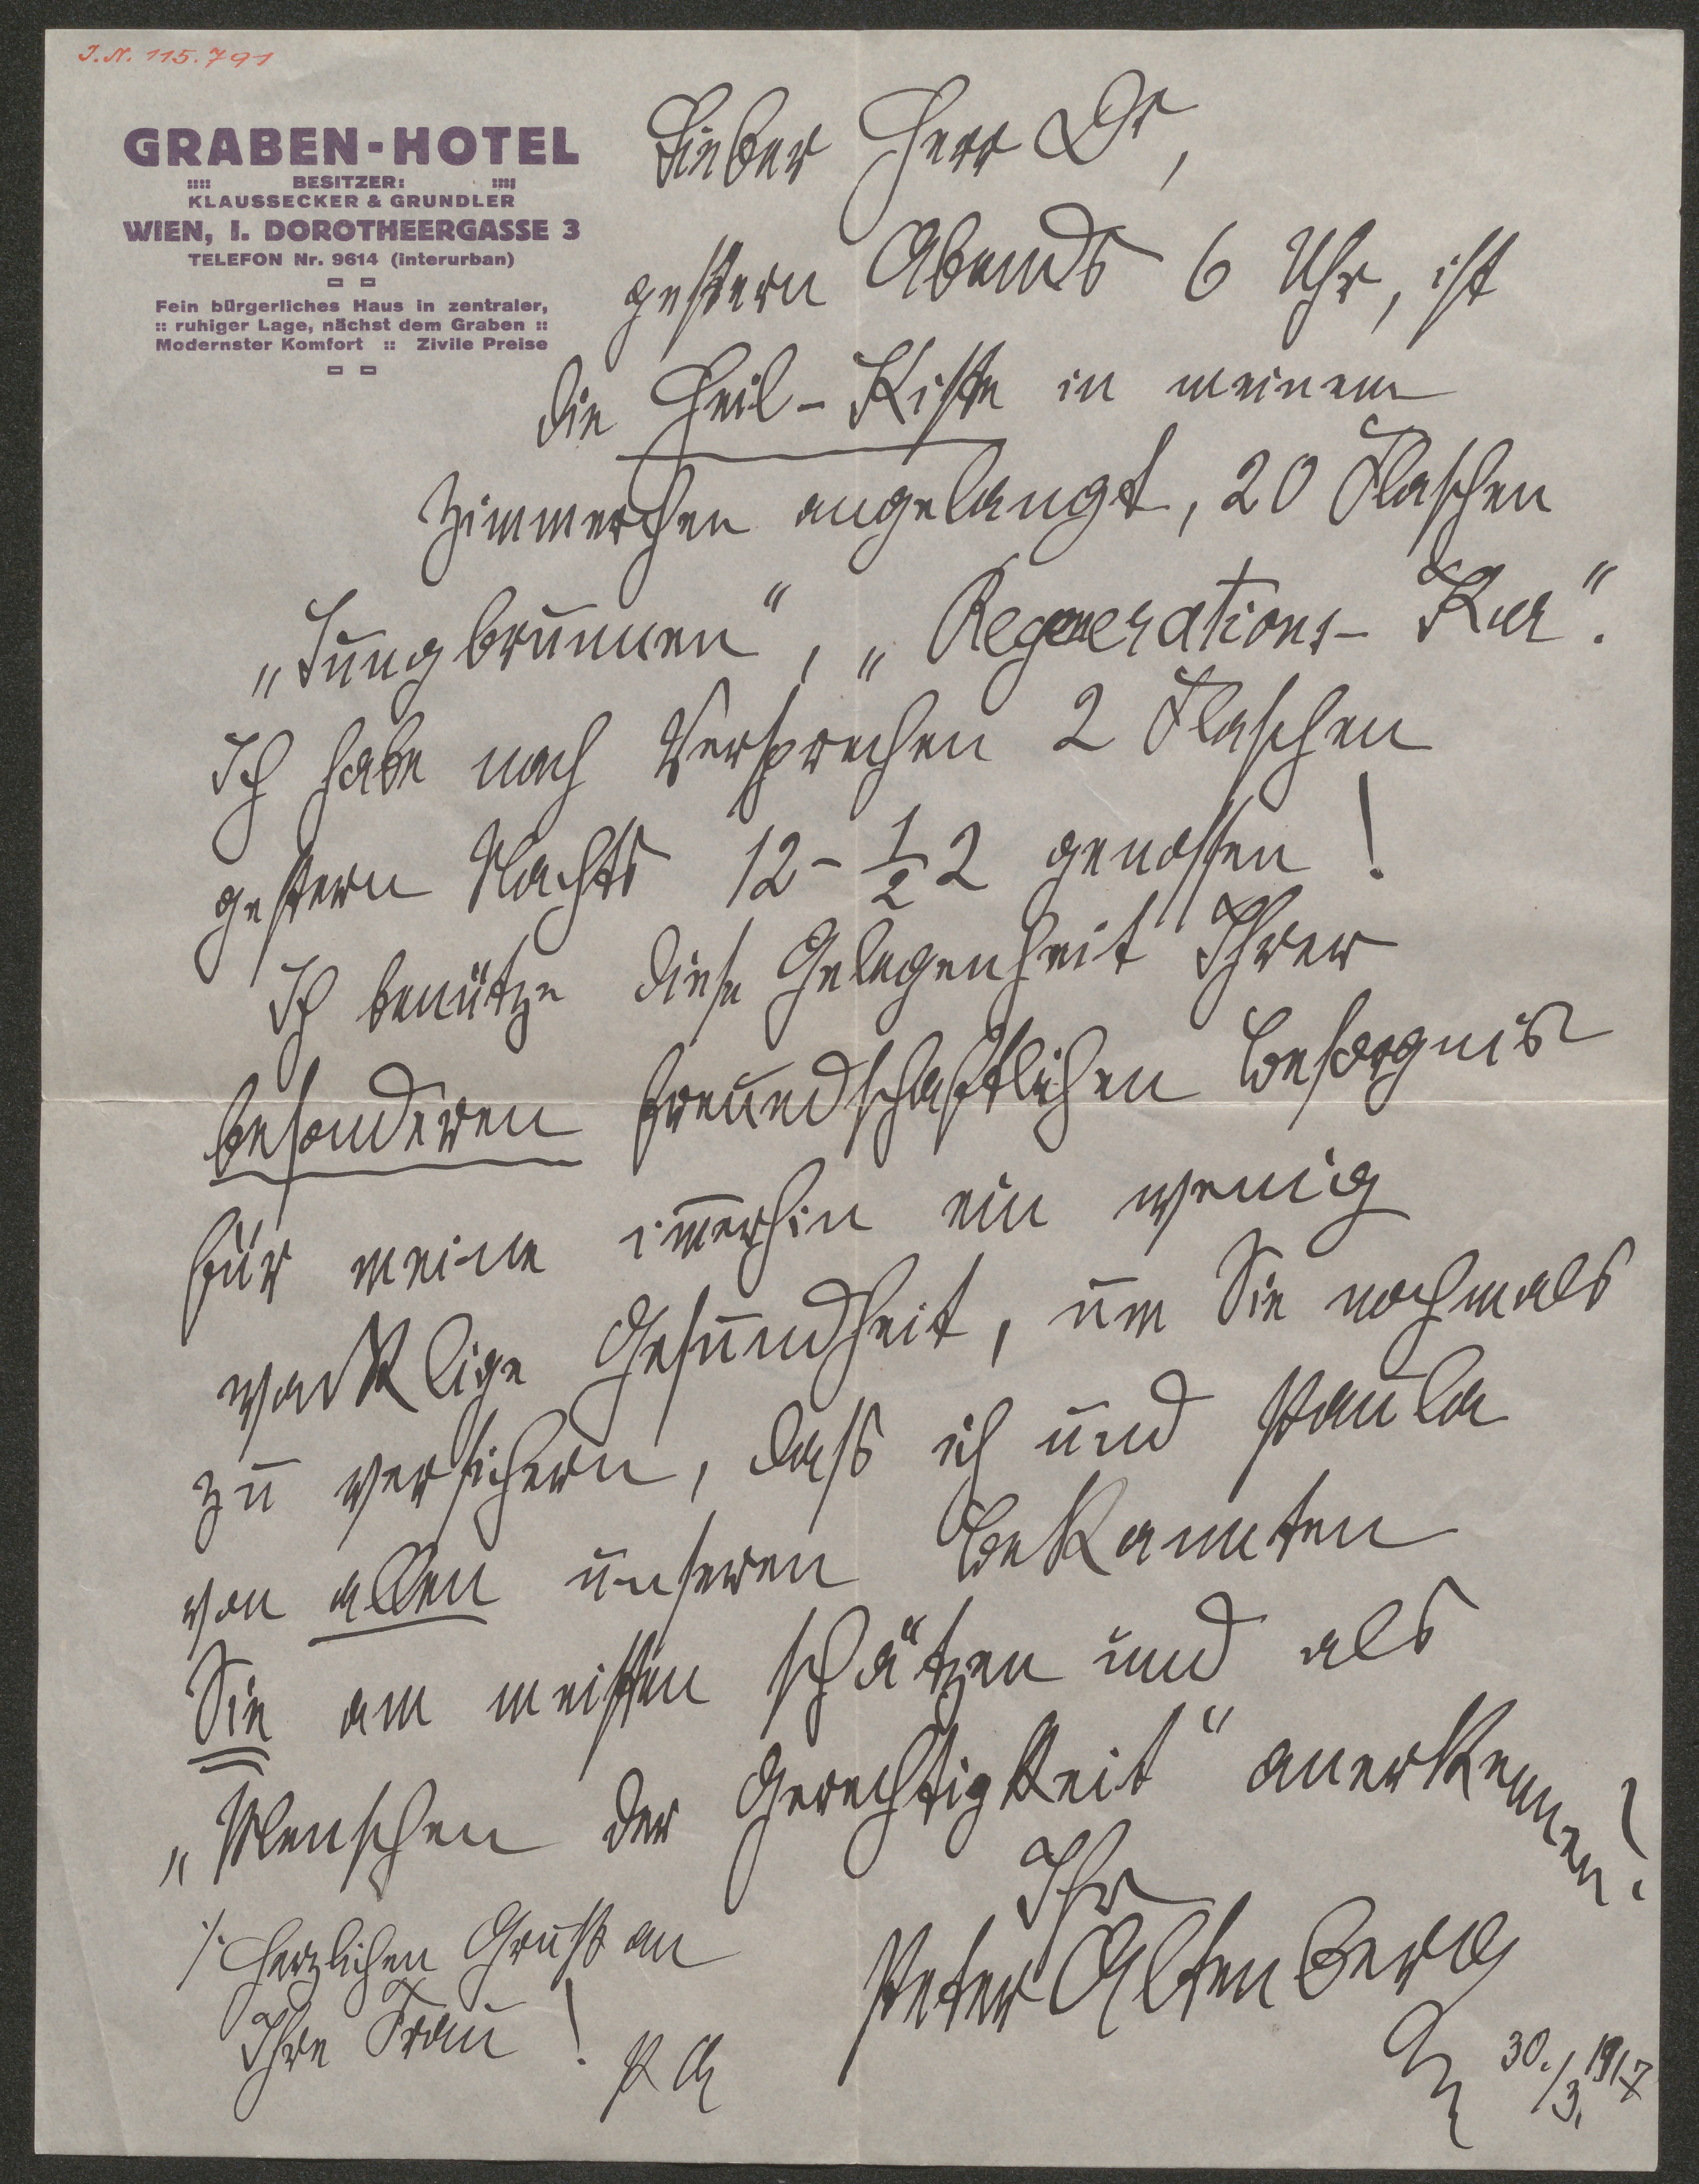 J. N. 115.791
GRABEN-HOTEL
:::: BESITZER: ::::
KLAUSSECKER & GRUNDLER
WIEN, I. DOROTHEERGASSE 3
TELEFON Nr. 9614 (interurban)
Fein bürgerliches Haus in zentraler,
:: ruhiger Lage, nächst dem Graben ::
Modernster Komfort :: Zivile Preise
Lieber Herr Dr,
gestern Abends 6 Uhr, ist
die Heil-Kiste in meinem
Zimmerchen angelangt, 20 Flaschen
„Jungbrunnen“, „Regenerations-Kur“.
Ich habe nach Versprechen 2 Flaschen
gestern Nachts 12-½2 genossen!
Ich benütze diese Gelegenheit Ihrer
besonderen freundschaftlichen Besorgnis
für meine im̅erhin ein wenig
wacklige Gesundheit, um Sie nochmals
zu versichern, dass ich und Paula
von allen unseren Bekannten
Sie am meisten schätzen und als
„Menschen der Gerechtigkeit“ anerkennen!
Ihr
Peter Altenberg
30./3. 1917
/. Herzlichen Gruß an
Ihre Frau!
PA